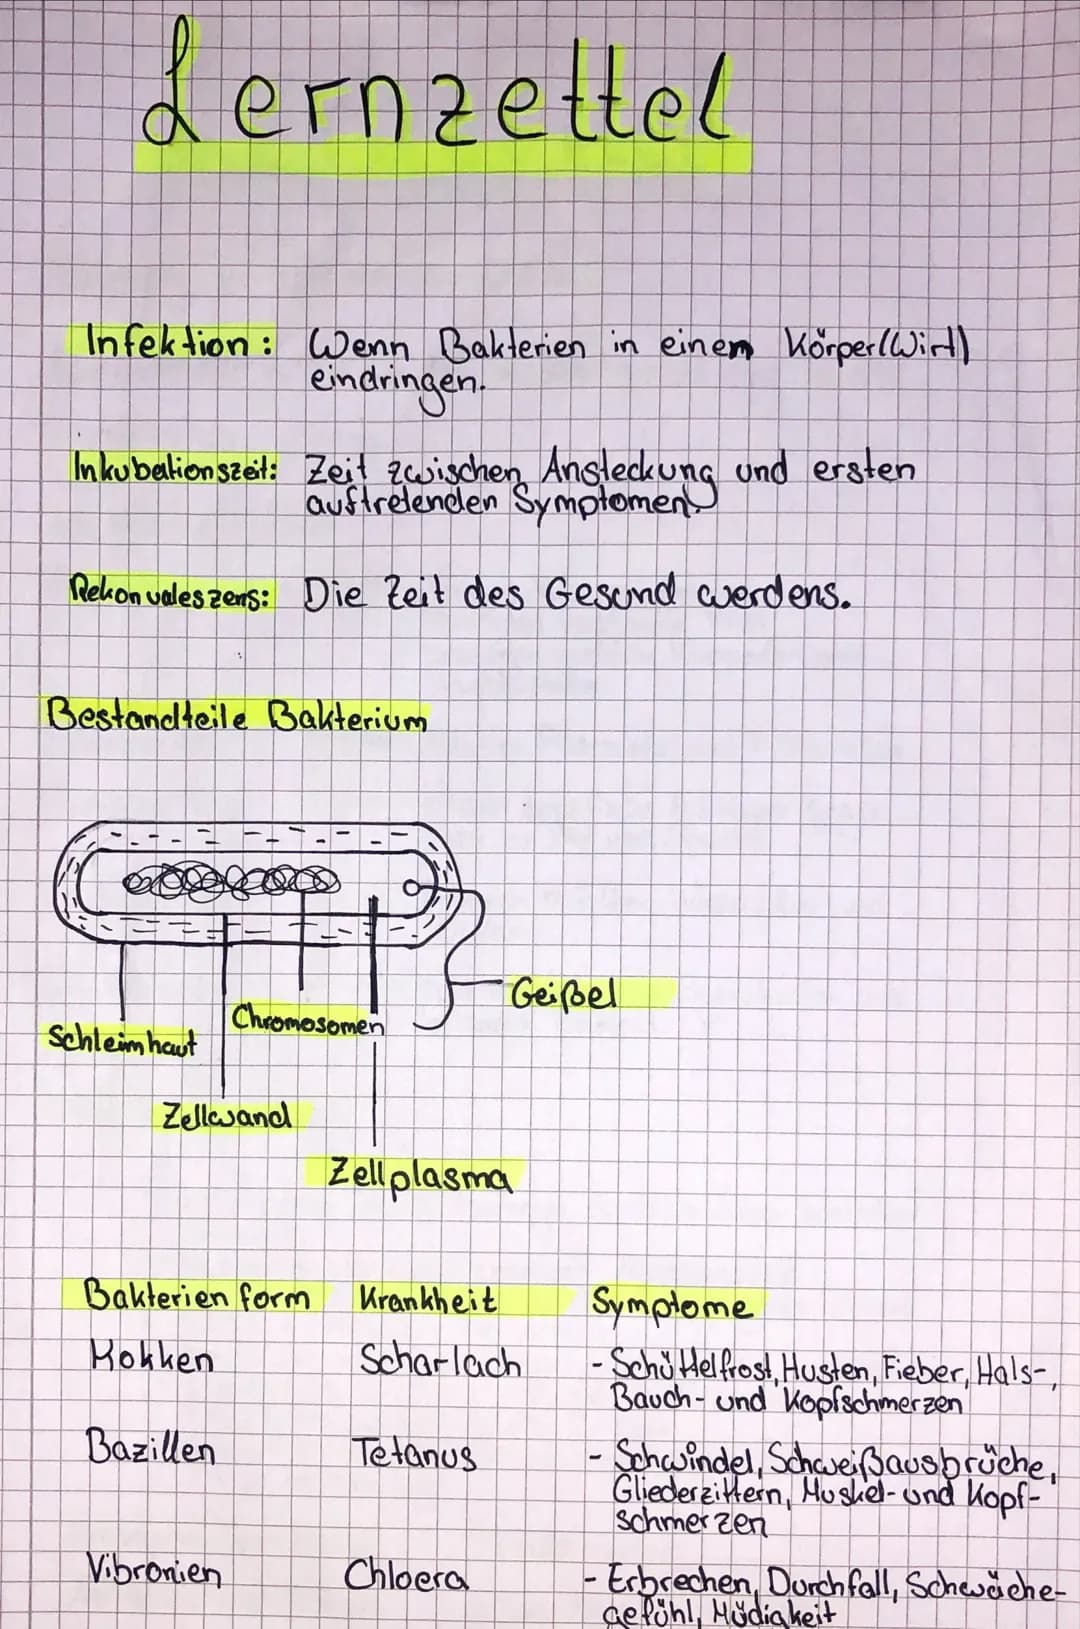 Lernzettel
Infektion: Wenn Bakterien in einem Körper(Wirt)
eindringen.
Inkubationszeit: Zeit zwischen Ansteckung und ersten
auftretenden Symptomen.
Rekonvaleszens: Die Zeit des Gesund werdens.
Bestandteile Bakterium
Geißel
Chromosomen
Schleimhaut
Zellwand
Zellplasma
Bakterien form Krankheit Symptome
Kokken Scharlach - Schüttelfrost, Husten, Fieber, Hals-,
Bauch- und Kopfschmerzen
Bazillen Tetanus - Schwindel, Schweißausbrüche,
Gliederzittern, Muskel- und Kopf-
schmerzen
Vibronien Chloera - Erbrechen, Durchfall, Schwäche-
gefühl, Müdigkeit